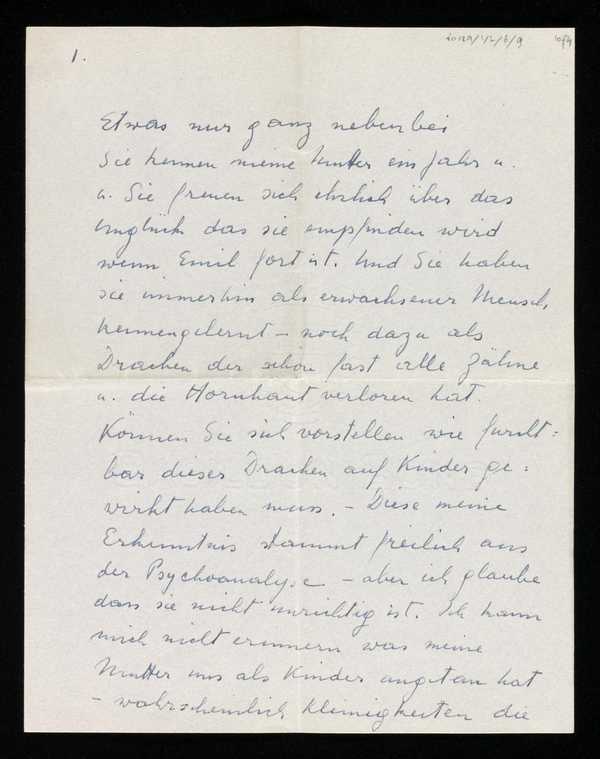 1.
20129/42/6/9
1of4
Etwas nur ganz nebenbei
Sie kennen meine Mutter ein Jahr u.
u. Sie freuen sich ehrlich über das
Unglück das sie empfinden wird
wenn Emil fort ist. Und Sie haben
sie immerhin als erwachsener Mensch
kennengelernt – noch dazu als
Drachen der schon fast alle Zähne
u. die Hornhaut verloren hat.
Können Sie sich vorstellen wie furcht=
bar dieser Drachen auf Kinder ge=
wirkt haben muss. – Diese meine
Erkenntnis stammt freilich aus
der Psychoanalyse – aber ich glaube
dass sie nicht unrichtig ist. Ich kann
mich nicht erinnern was meine
Mutter uns als Kinder angetan hat
– wahrscheinlich Kleinigkeiten die